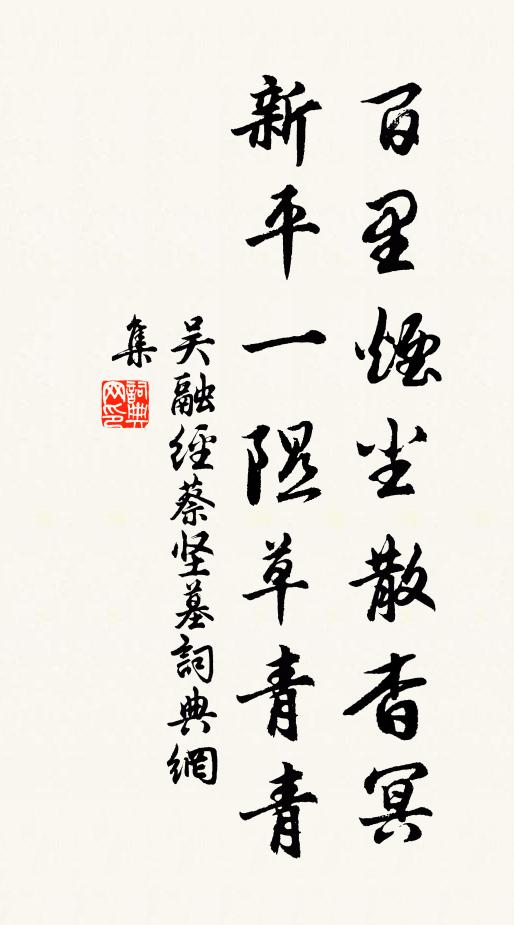 百里煙尘散杳冥
新平一隰草青青
吴融經蔡坚墓詞典網
集
詞典网印